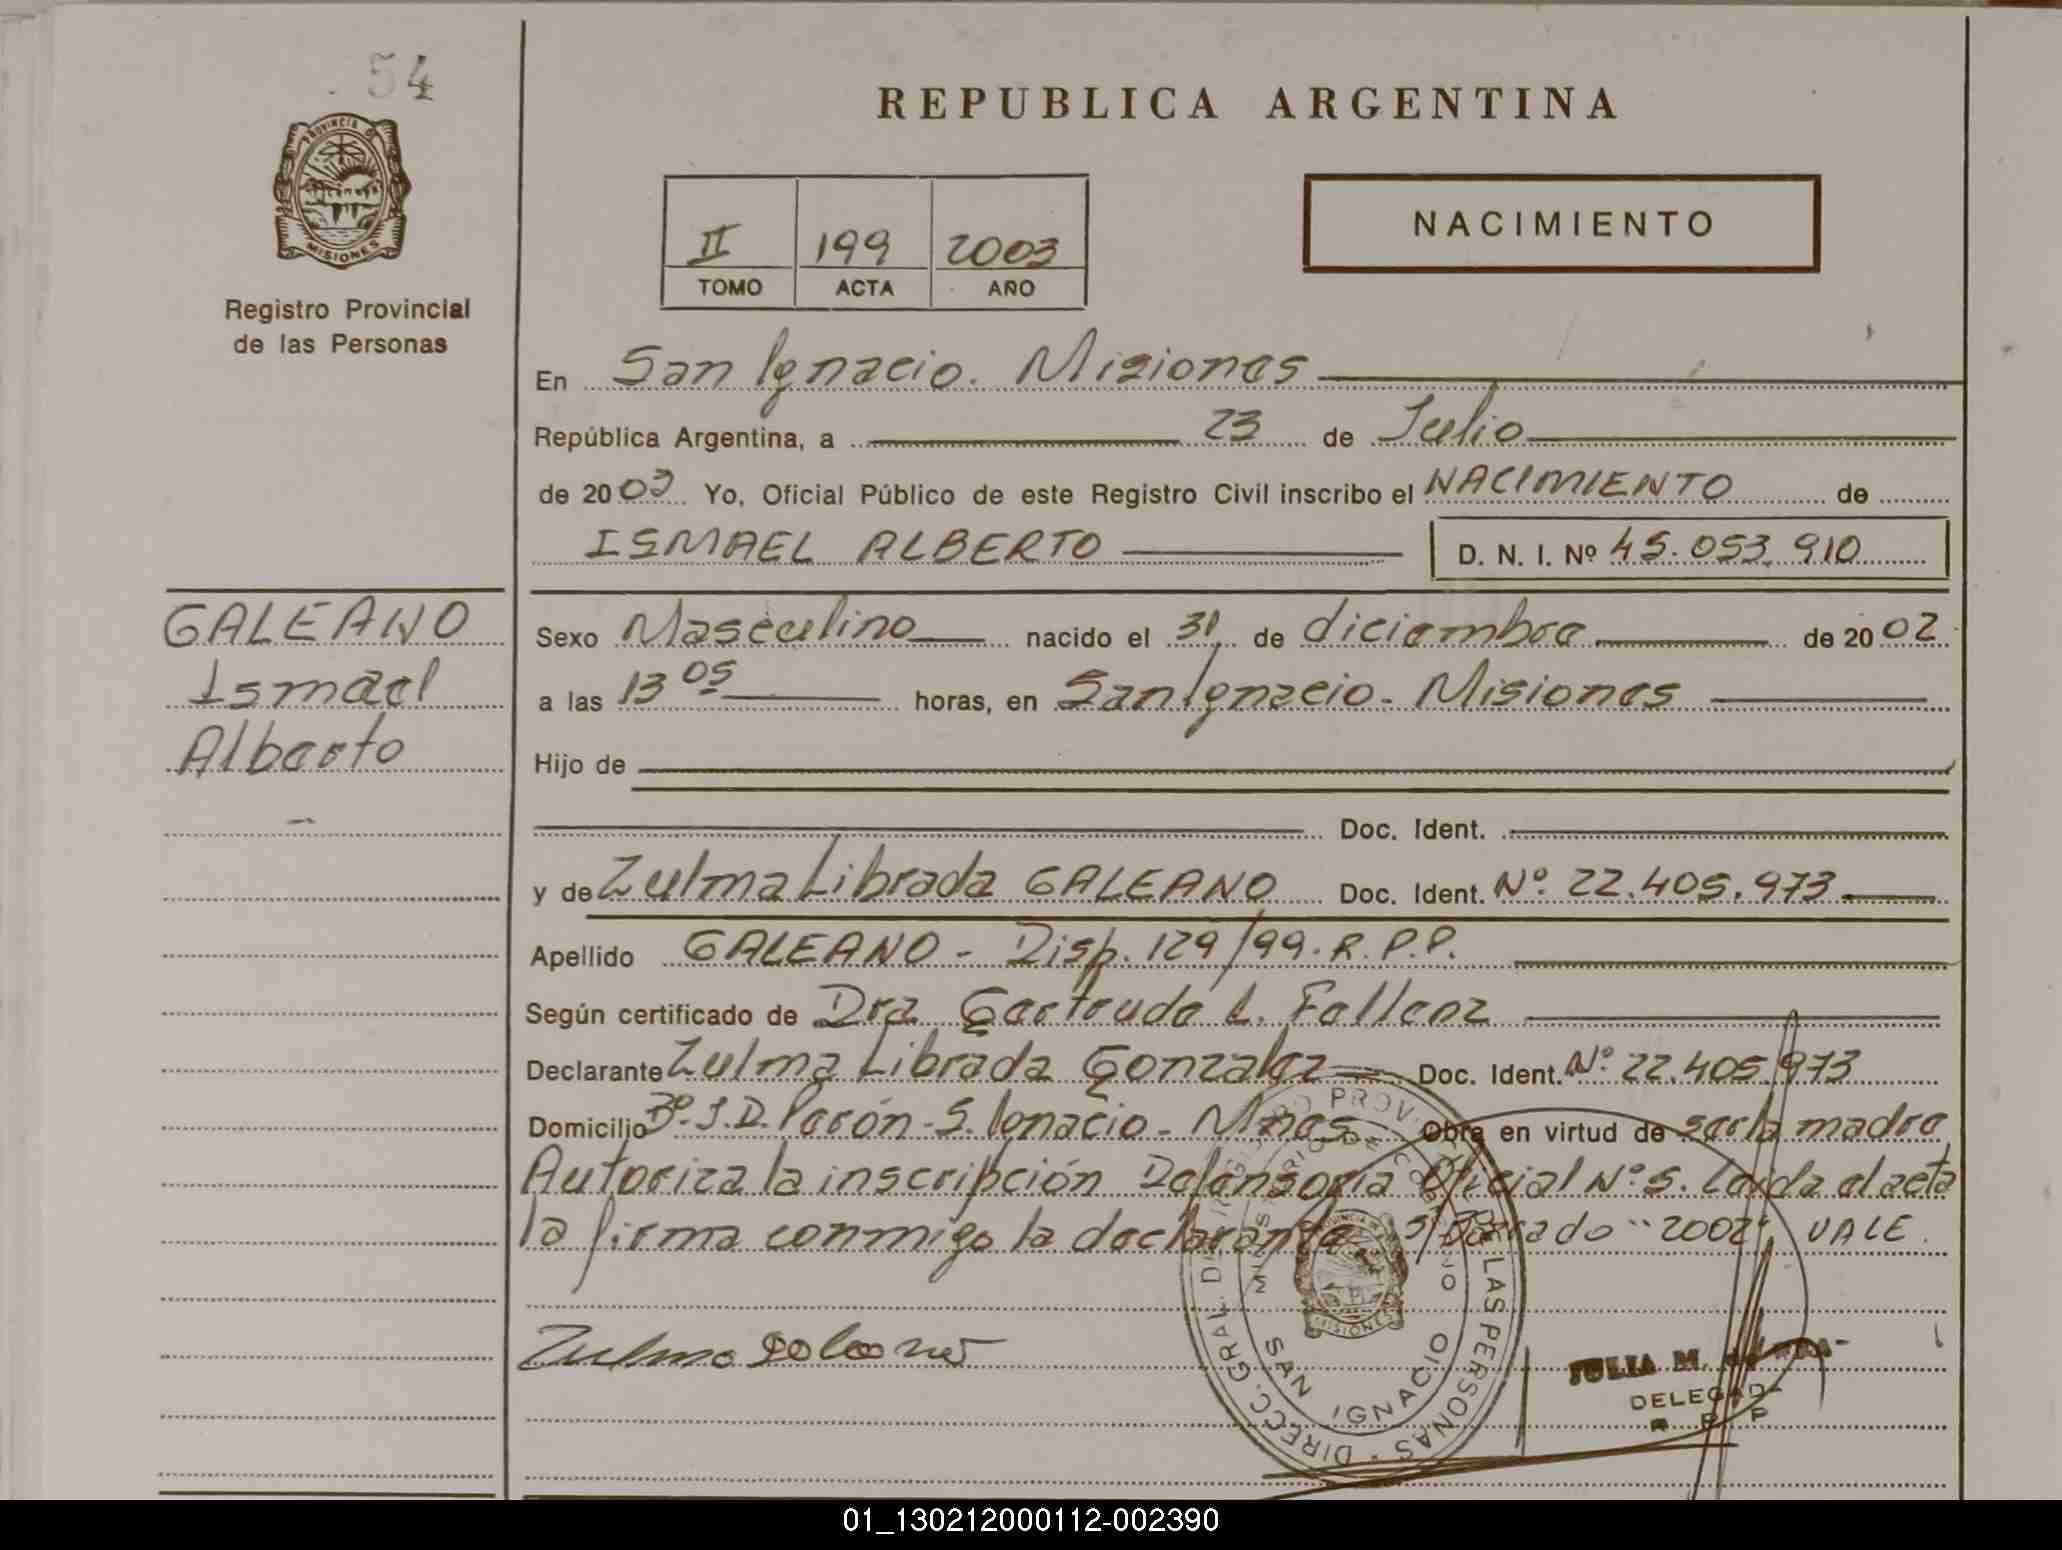 54
PROVINCIA DE
MISIONES
Registro Provincial
de las Personas
REPUBLICA ARGENTINA
II 199 2003
TOMO ACTA AÑO
NACIMIENTO
En San Ignacio. Misiones
República Argentina, a 23 de Julio
de 2003 Yo, Oficial Público de este Registro Civil inscribo el NACIMIENTO de
ISMAEL ALBERTO D. N. I. Nº 45.053.910
GALEANO
Ismael
Alberto
Sexo Masculino nacido el 31 de diciembre de 2002
a las 13 05 horas, en San Ignacio - Misiones
Hijo de
Doc. Ident.
y de Zulma Librada GALEANO Doc. Ident. Nº. 22.405.973
Apellido GALEANO - Disp. 129/99. R.P.P.
Según certificado de Dra Gertrude L. Fallenz
Declarante Zulma Librada Gonzalez Doc. Ident. Nº 22.405.973
Domicilio Bº. J.D. Perón - S. Ignacio - Mnes Obra en virtud de ser la madre
Autoriza la inscripción Defensoria Oficial Nº 5. Leida el acta
la firma conmigo la declarante s/borrado "2002" VALE.
Zulma Galeano
DIRECC. GRAL. DEL REGISTRO PROVINCIAL DE LAS PERSONAS
MINISTERIO DE GOBIERNO
SAN IGNACIO
MISIONES
JULIA M. de
DELEGADA
R P P
01_130212000112-002390